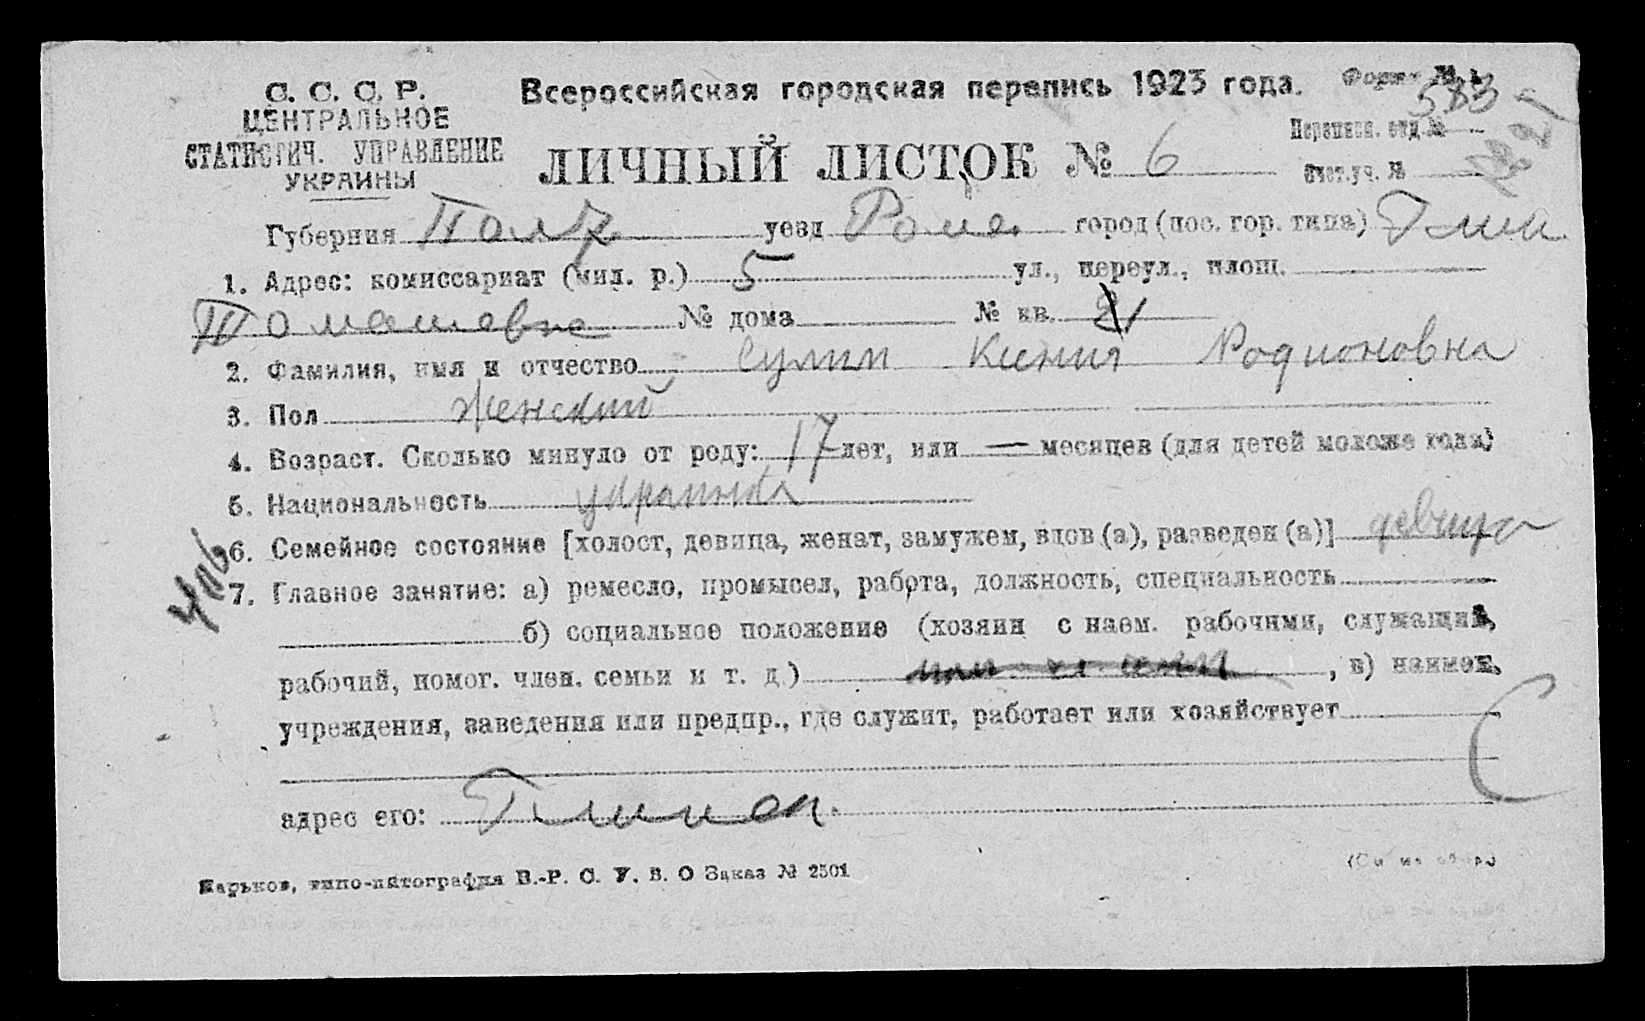 С. С. С. Р.
ЦЕНТРАЛЬНОЕ
СТАТИСТИЧ. УПРАВЛЕНИЕ
УКРАИНЫ
Всероссийская городская перепись 1923 года.
Форма № 1
583
Переписн. отд. №
ЛИЧНЫЙ ЛИСТОК № 6
Счет. уч. №
Губерния Полт. уезд Роме. город (пос. гор. типа) Глин.
1. Адрес: комиссариат (мил. р.) 5 ул., переул., площ.
Томашевка № дома № кв. 21
2. Фамилия, имя и отчество Сулим Ксения Родионовна
3. Пол Женский
4. Возраст. Сколько минуло от роду: 17 лет, или — месяцев (для детей моложе года)
5. Национальность украинка
6. Семейное состояние [холост, девица, женат, замужем, вдов (а), разведен (а)] девица
7. Главное занятие: а) ремесло, промысел, работа, должность, специальность
б) социальное положение (хозяин с наем. рабочими, служащий,
рабочий, помог. член. семьи и т. д.) , в) наимен.
учреждения, заведения или предпр., где служит, работает или хозяйствует
адрес его: Глинск.
Харьков, типо-литография В.-Р. С. У. В. О Заказ № 2501
(См на обор.)